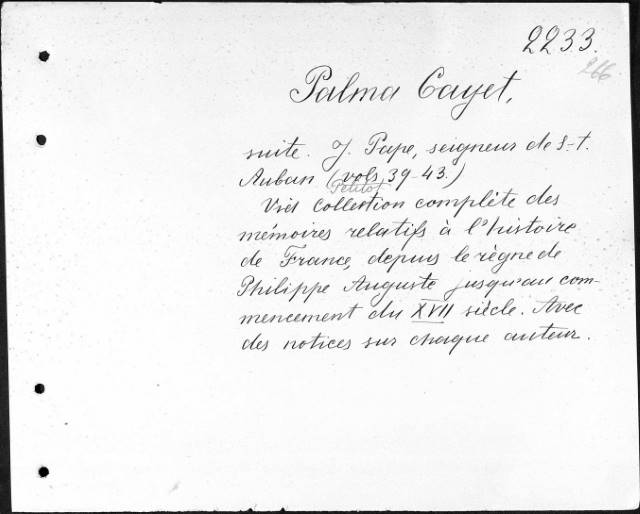 2233.
266
Palma Cayet,
suite. J. Pape, seigneur de S-t.
Auban (vols, 39-43.)
Petitot
Vid collection complète des
mémoires relatifs à l'histoire
de France, depuis le règne de
Philippe Auguste jusqu'au com-
mencement du XVII siècle. Avec
des notices sur chaque auteur.